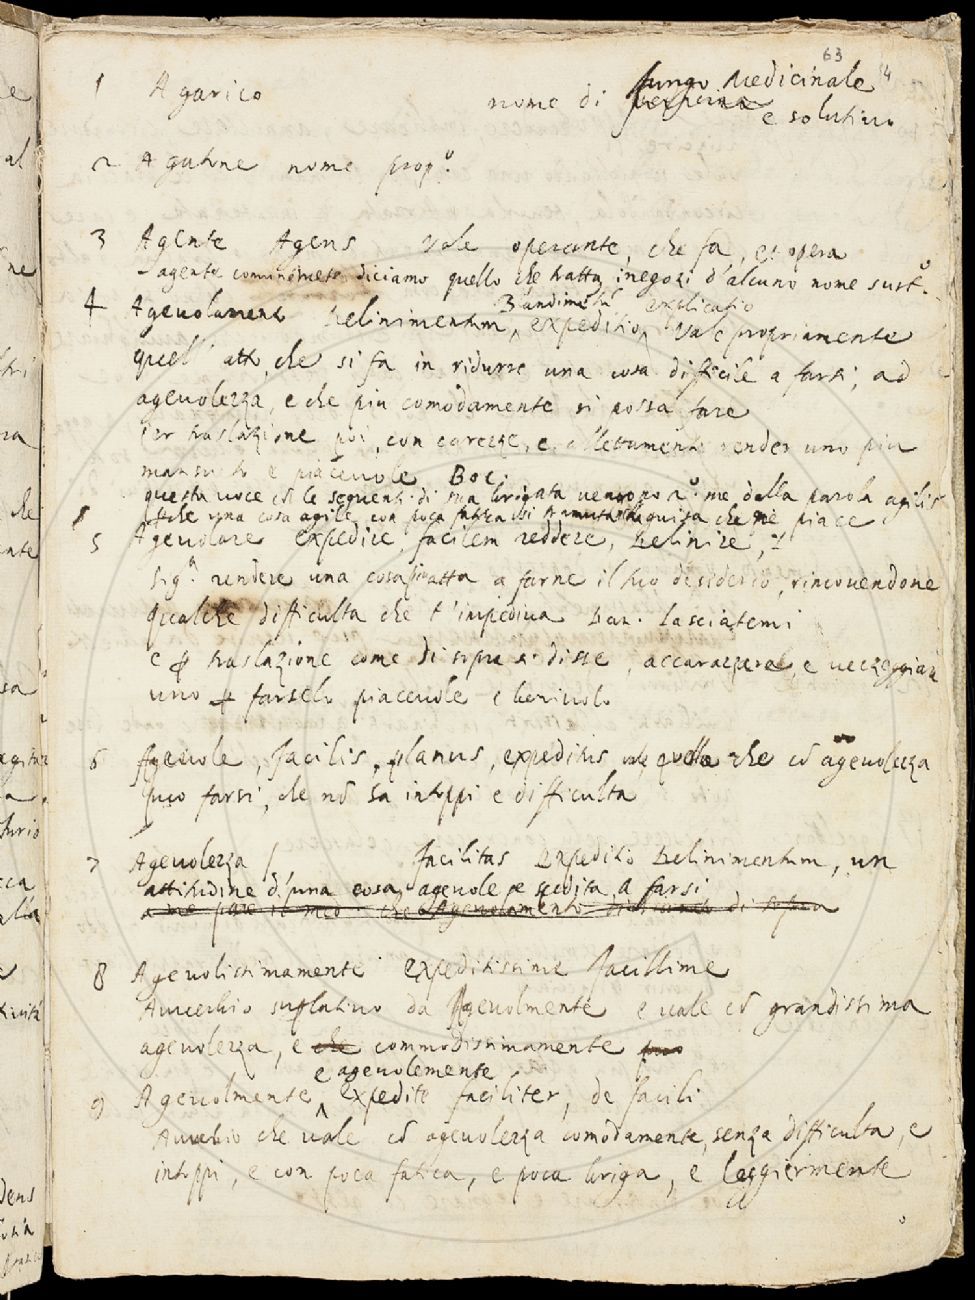 63
54
1 Agarico nome di fungo Medicinale
e solutivo
2 Agatone nome prop.o
3 Agente Agens Vale operante, che fa, et opera
agente diciamo quello che tratta i negozi d'alcuno nome sust.o
4 Agevolamento Delinimentum, expeditio, explicatio Vale propriamente
quell'atto, che si fa in ridurre una cosa difficile a farsi, ad
agevolezza, e che piu comodamente si possa fare
Per traslazione poi, con carezze, e allettamento render uno piu
mansueto e piacevole Boc.
questa voce cō le seguenti di sua brigata vengono a.o me dalla parola agilis
che una cosa agile con poca fatica si guisa che ne piace
5 Agevolare expedire, facilem reddere, Delinire,
sig.a rendere una cosa atta a farne il suo desiderio, rimovendone
qualche difficulta che t'impediva Dan. Lasciatemi
e p traslazione come di sopra si disse, accarezzare, e vezzeggiar
uno p farselo piacevole e benivolo
6 Agevole, facilis, planus, expeditus, vale quello che cō agevolezza
puo farsi, che nō ha intoppi e difficulta
7 Agevolezza facilitas Expeditio Delinimentum, un
attitudine d'una cosa agevole e spedita a farsi
a me pare il med.o che Agevolamento di sopra
8 Agevolissimamente expeditissime facillime
Avverbio suplativo da Agevolmente e vale cō grandissima
agevolezza, e che commodissimamente puo
9 Agevolmente, e agevolemente expedite faciliter, de facili
Avverbio che vale cō agevolezza comodamente, senza difficulta, e
intoppi, e con poca fatica, e poca briga, e leggiermente